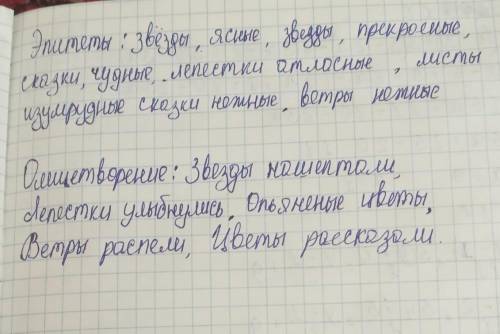 Эпитеты: звёзды, ясные, звезды, прекрасные,
сказки, чудные, лепестки атласные, листы
изумрудные сказки нежные, ветры нежные
Олицетворение: Звезды нашептали,
Лепестки улыбнулись, Опьяненые цветы,
Ветры распели, Цветы рассказали.